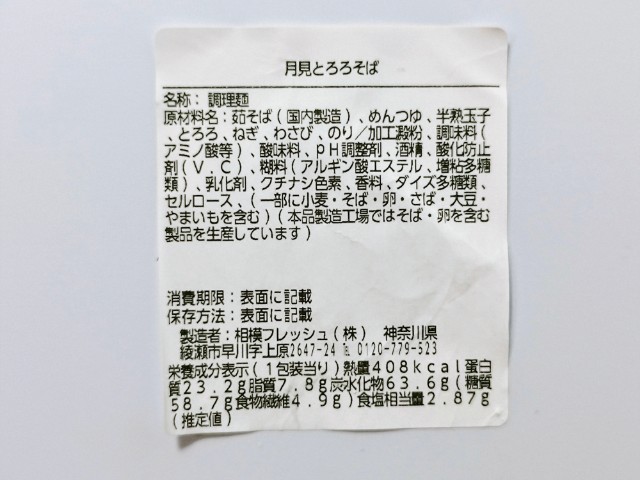 月見とろろそば
名称：調理麺
原材料名：茹そば（国内製造）、めんつゆ、半熟玉子
、とろろ、ねぎ、わさび、のり／加工澱粉、調味料（
アミノ酸等）、酸味料、ｐＨ調整剤、酒精、酸化防止
剤（Ｖ．Ｃ）、糊料（アルギン酸エステル、増粘多糖
類）、乳化剤、クチナシ色素、香料、ダイズ多糖類、
セルロース、（一部に小麦・そば・卵・さば・大豆・
やまいもを含む）（本品製造工場ではそば・卵を含む
製品を生産しています）
消費期限：表面に記載
保存方法：表面に記載
製造者：相模フレッシュ（株）　神奈川県
綾瀬市早川字上原2647-24 ℡ 0120-779-523
栄養成分表示（１包装当り）熱量４０８ｋｃａｌ蛋白
質２３．２ｇ脂質７．８ｇ炭水化物６３．６ｇ（糖質
５８．７ｇ食物繊維４．９ｇ）食塩相当量２．８７ｇ
（推定値）